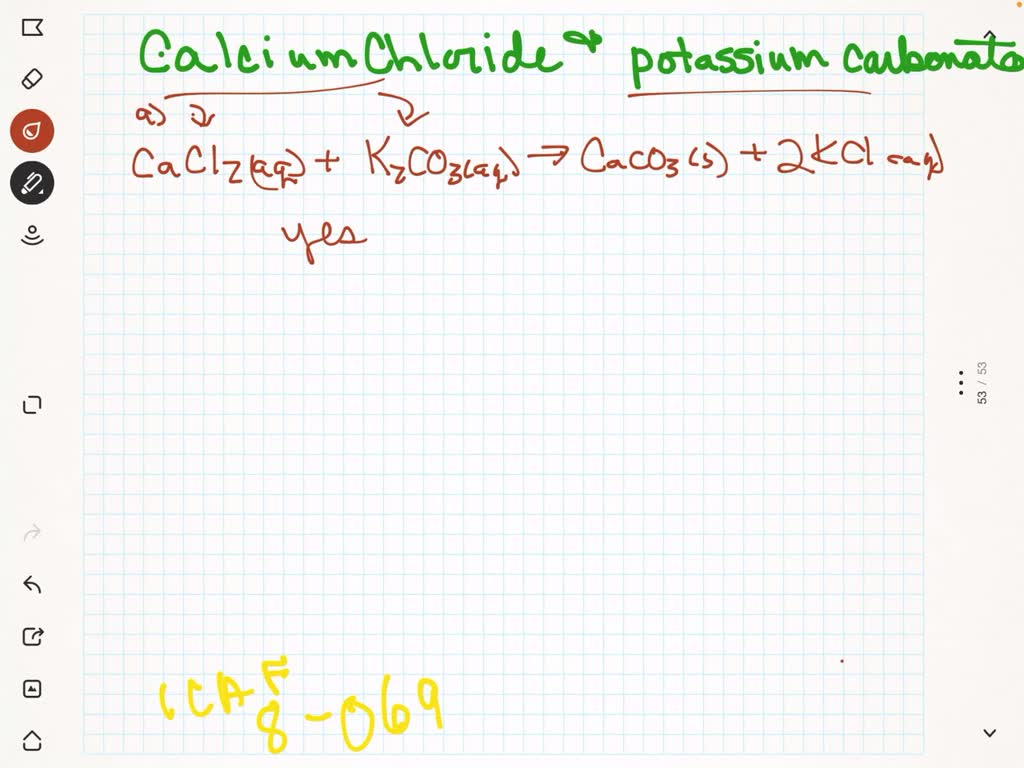 Calcium Chloride & potassium carbonate
a)
CaCl2(aq) + K2CO3(aq) → CaCO3(s) + 2KCl(aq)
yes
53 / 53
8-069